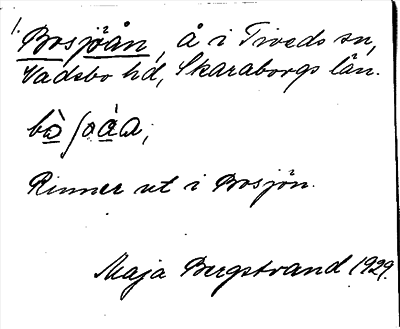 1. Bosjöån, å i Tiveds sn,
Vadsbo hd, Skaraborgs län.
bò̲ʃoá̲a,
Rinner ut i Bosjön.
Maja Bergstrand 1929.